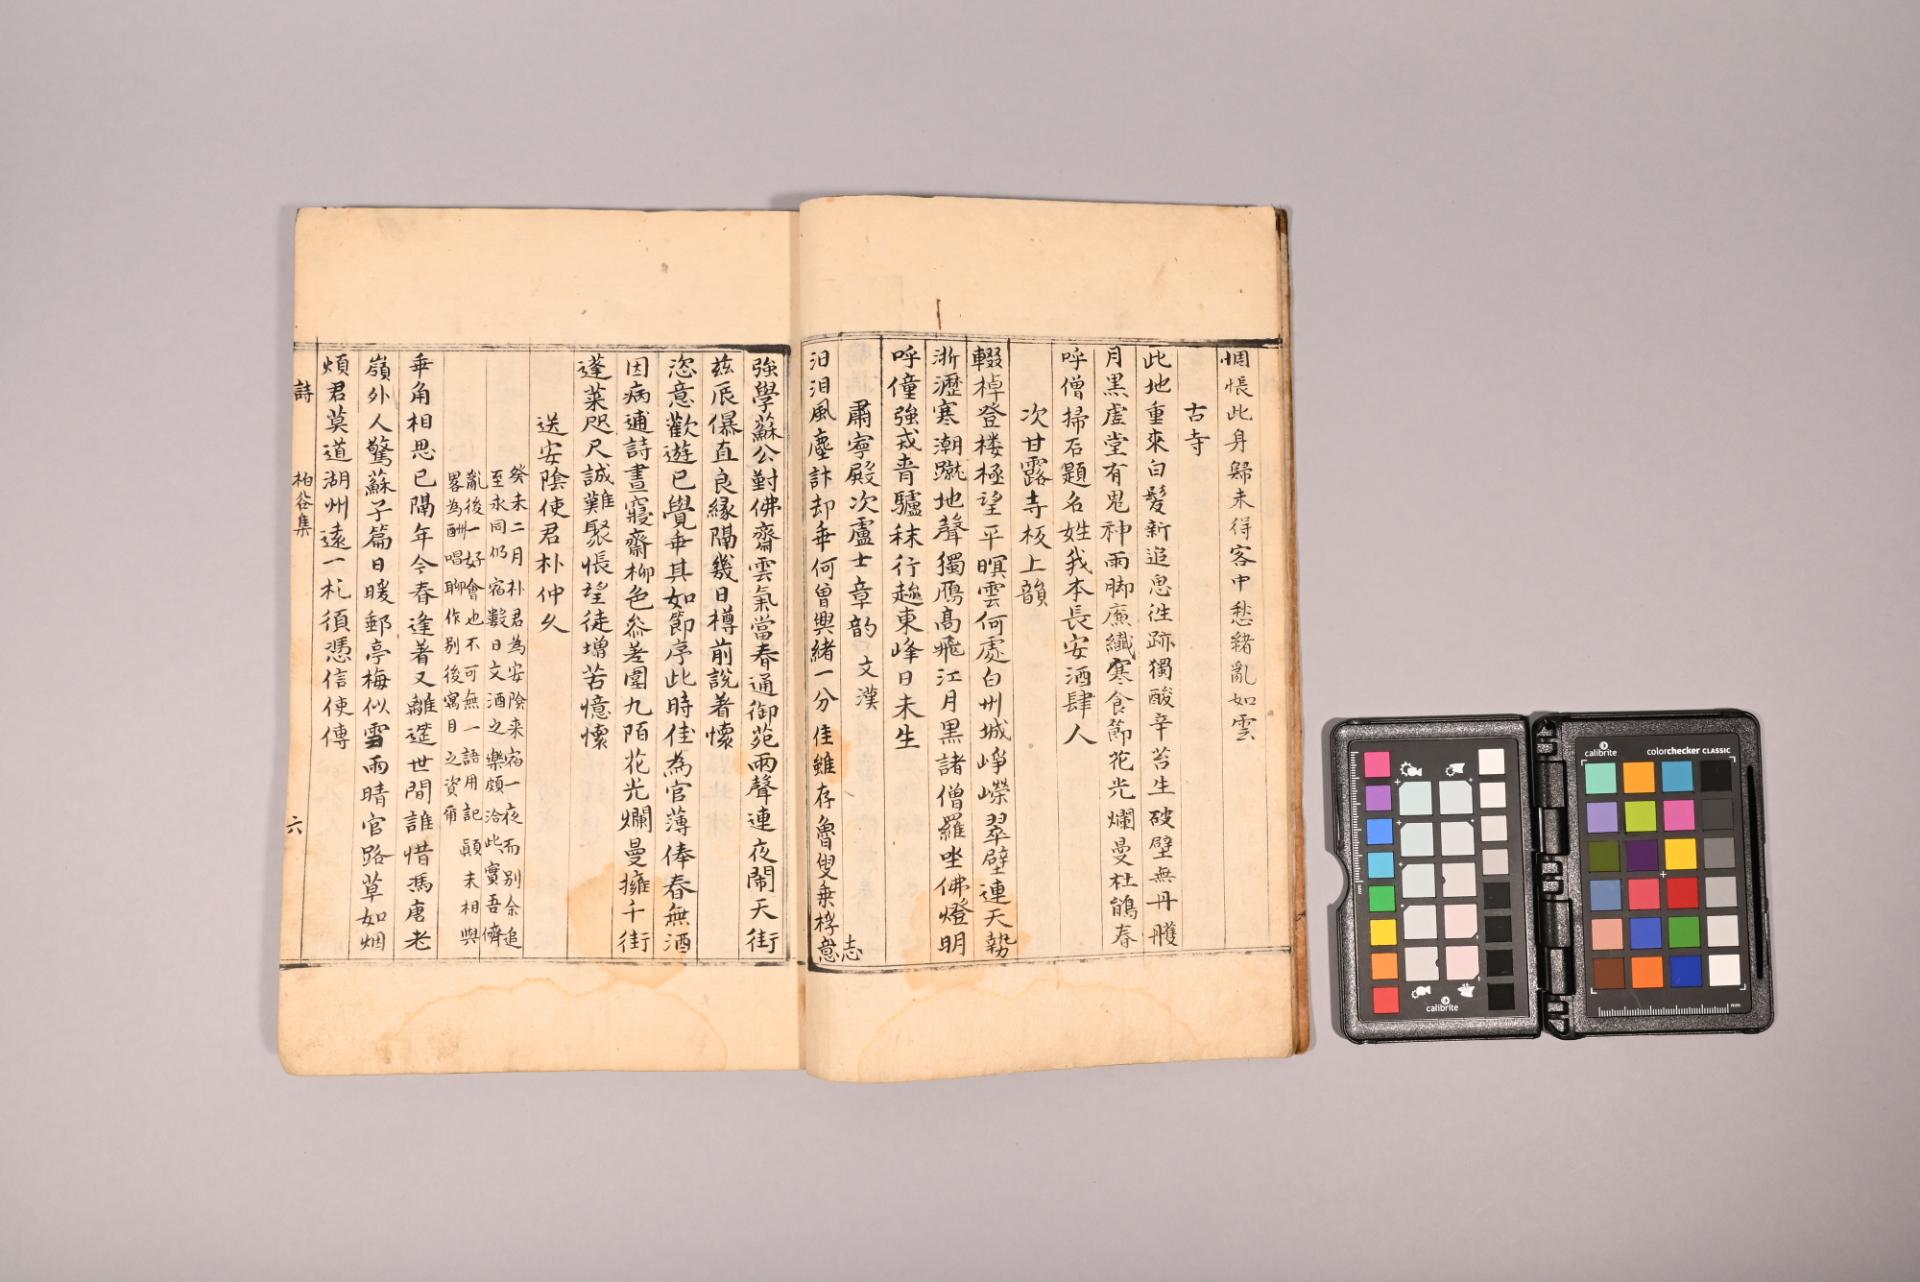 惆悵此身歸未得客中愁緒亂如雲
古寺
此地重來白髮新追思徃跡獨酸辛苔生破壁無丹雘
月黑虛堂有鬼神雨脚廉纎寒食節花光爛曼杜鵑春
呼僧掃石題名姓我本長安酒肆人
次甘露寺板上韻
輟棹登楼極望平暝雲何處白州城崢嶸翠壁連天勢
淅瀝寒潮蹴地聲獨鴈高飛江月黒諸僧羅坐佛燈明
呼僮強戎青驢秣行趂東峰日未生
肅寧殿次盧士章韵 文漢
汨汨風塵計却乖何曾興緒一分佳雖存魯叟乗桴意
志
強學蘇公對佛齋雲氣當春通御苑雨聲連夜鬧天街
茲辰儤直良緣隔幾日樽前説着懷
恣意歡遊已覺乖其如節序此時佳為官薄俸春無酒
因病逋詩晝寢齋柳色叅差圍九陌花光爛曼擁千街
蓬萊咫尺誠難聚悵望徒增苦憶懷
送安陰使君朴仲久
癸未二月朴君為安陰来宿一夜而别余追
至永同仍宿數日文酒之樂頗洽此實吾儕
亂後一好會也不可無一語用記顛末相與
畧為酬唱聊作别後寓目之資甭
乖角相思已隔年今春逢着又離筵世間誰惜馮唐老
嶺外人驚蘇子篇日暖郵亭梅似雪雨晴官路草如烟
煩君莫道湖州遠一札須憑信使傳
詩 柏谷集 六
calibrite
calibrite
colorchecker CLASSIC
mm